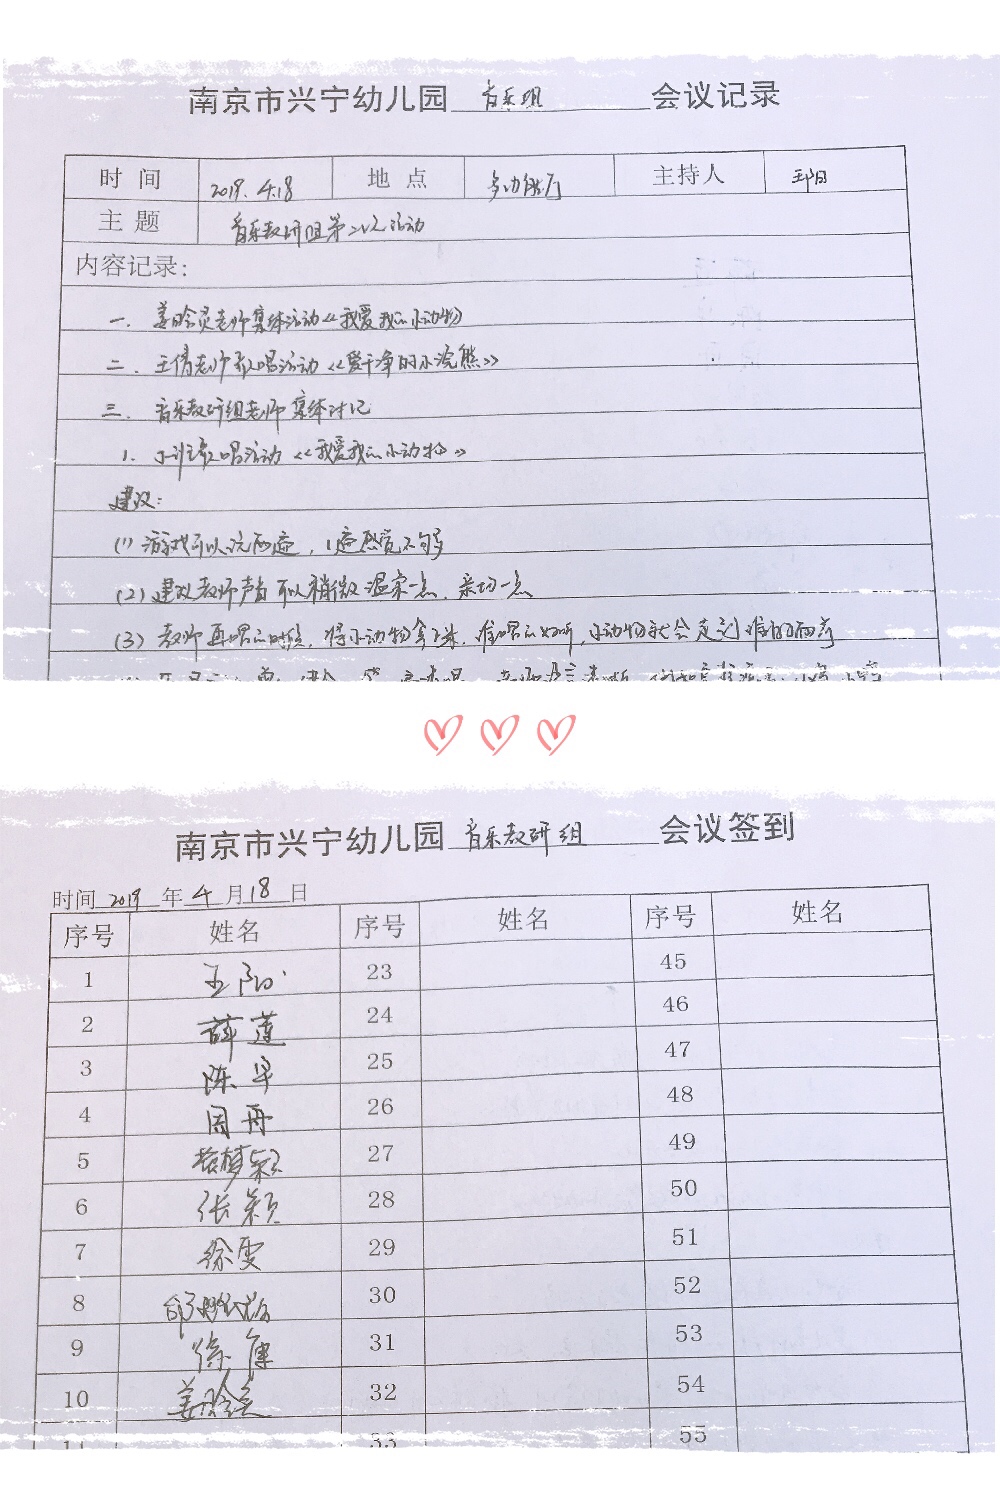 南京市兴宁幼儿园 音乐组 会议记录
时间 2019.4.18 地点 多功能厅 主持人 王阳
主题 音乐教研组第二次活动
内容记录：
一. 姜晗灵老师集体活动《我爱我的小动物》
二. 王倩老师歌唱活动《爱干净的小浣熊》
三. 音乐教研组老师集体讨论
1. 小班歌唱活动《我爱我的小动物》
建议：
(1) 游戏可以玩两遍，1遍感觉不够
(2) 建议教师声音可以稍微温柔一点、亲切一点
(3) 教师再唱的时候，将小动物拿下来，谁唱的好听，小动物就会走到谁的面前
南京市兴宁幼儿园 音乐教研组 会议签到
时间 2019 年 4 月 18 日
序号 姓名 序号 姓名 序号 姓名
1 王阳 23 45
2 薛莲 24 46
3 陈早 25 47
4 周冉 26 48
5 梦颖 27 49
6 张颖 28 50
7 徐雯 29 51
8 30 52
9 徐 31 53
10 姜晗灵 32 54
11 33 55